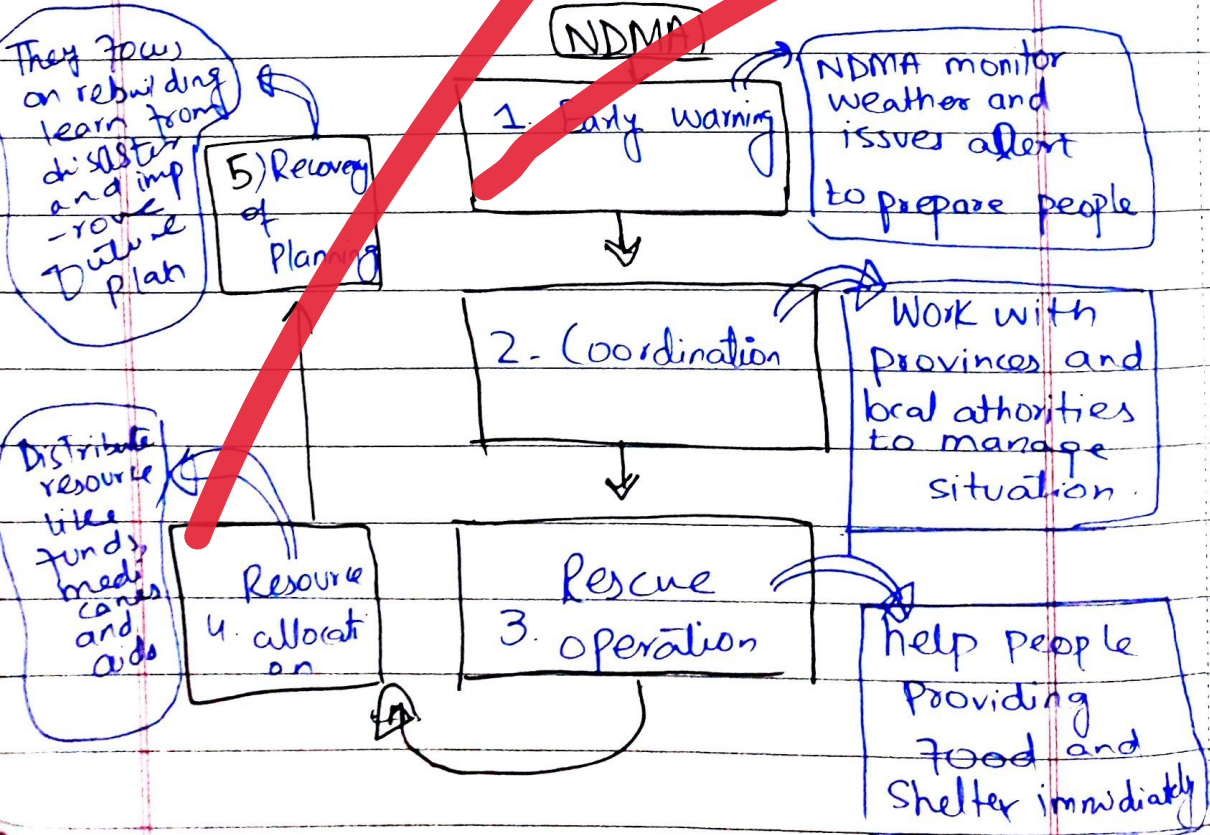 NDMA
1. Early warning
NDMA monitor
weather and
issues alert
to prepare people
2- Coordination
Work with
provinces and
local athorities
to manage
situation.
Rescue
3. operation
help people
Providing
Food and
Shelter immidiately
Resource
4. allocati
on
Distribute
resource
like
funds,
medi
canes
and
aids
5) Recovery
of
Planning
They focus
on rebuilding
learn from
disaster
and imp
-rove
Future
plan